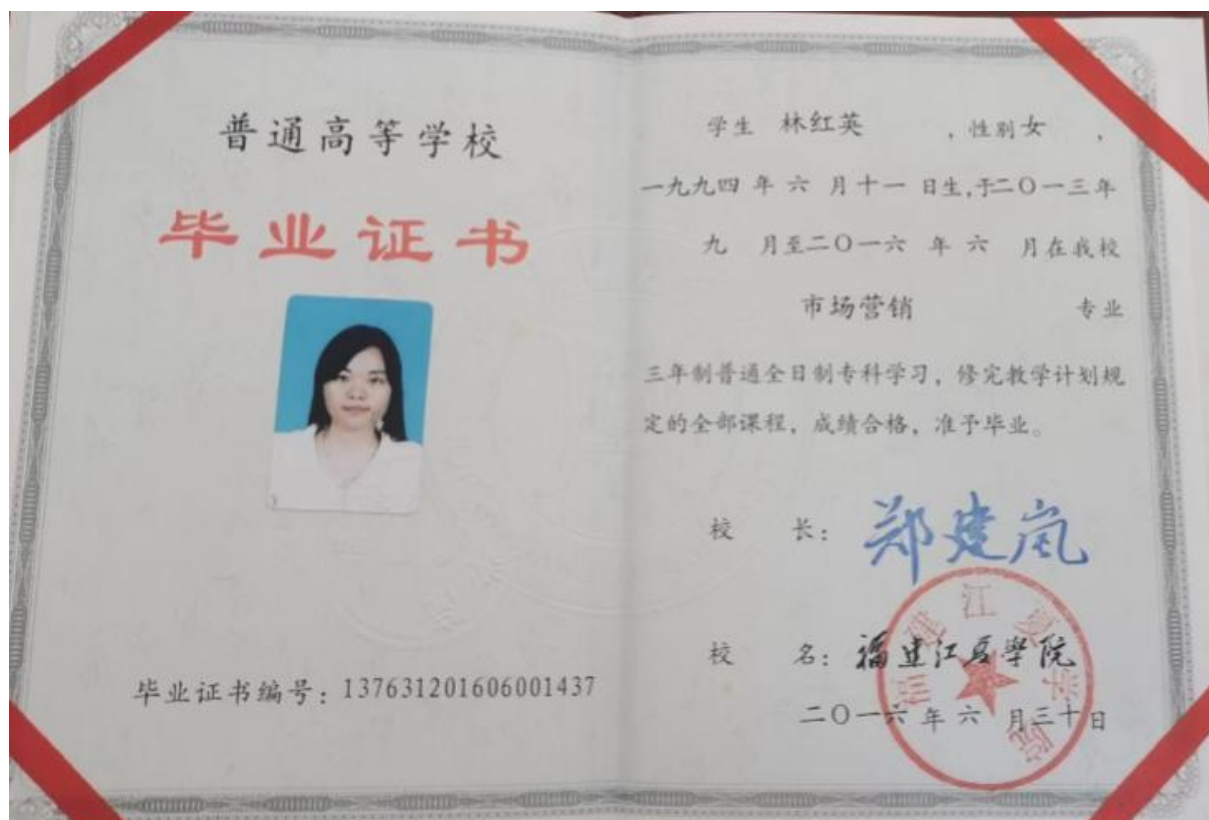 普通高等学校
毕业证书
毕业证书编号：137631201606001437
学生 林红英 ，性别 女 ，
一九九四 年 六 月 十一 日生,于二〇一三年
九 月至二〇一六 年 六 月在我校
市场营销 专业
三年制普通全日制专科学习，修完教学计划规
定的全部课程，成绩合格，准予毕业。
校 长：郑建岚
校 名：福建江夏學院
二〇一六 年 六 月三十日
福建江夏学院